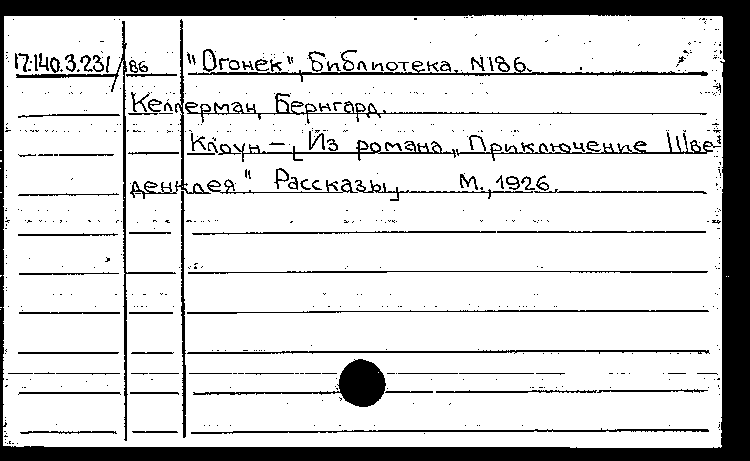 17.140.3.231/186 "Огонек", Библиотека. N186.
Келлерман, Бернгард.
Клоун. – [Из романа „Приключение Шве
денклея". Рассказы] М., 1926.